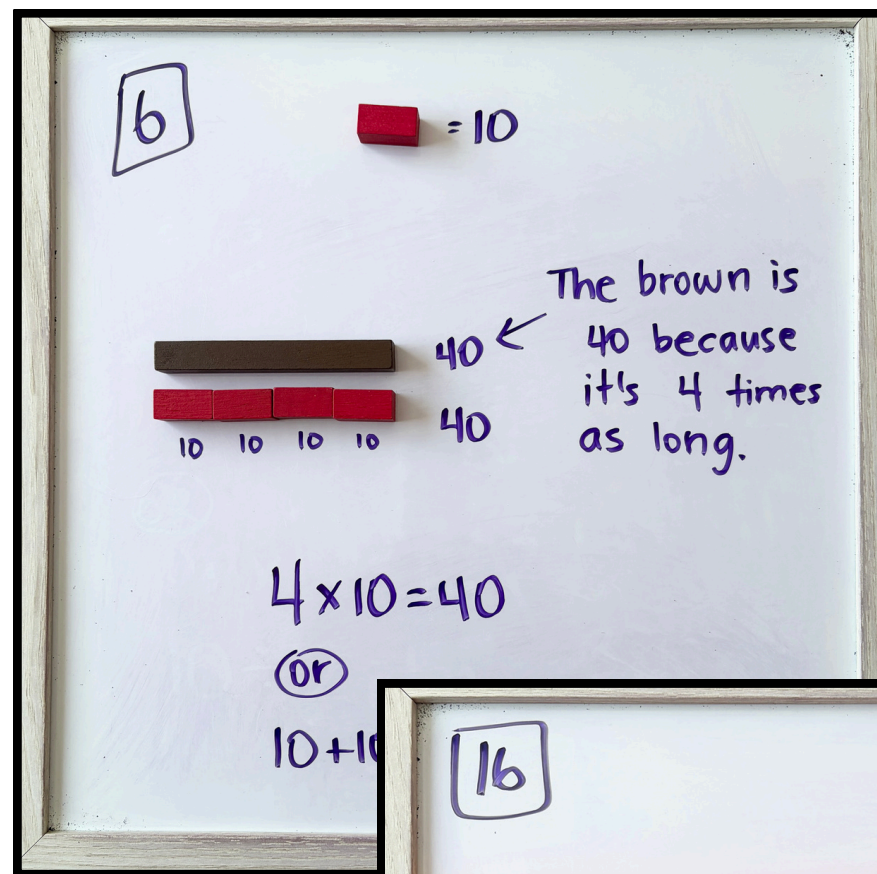 6
= 10
The brown is
40 because
it's 4 times
as long.
40
40
10 10 10 10
4 x 10 = 40
or
10 + 10
16